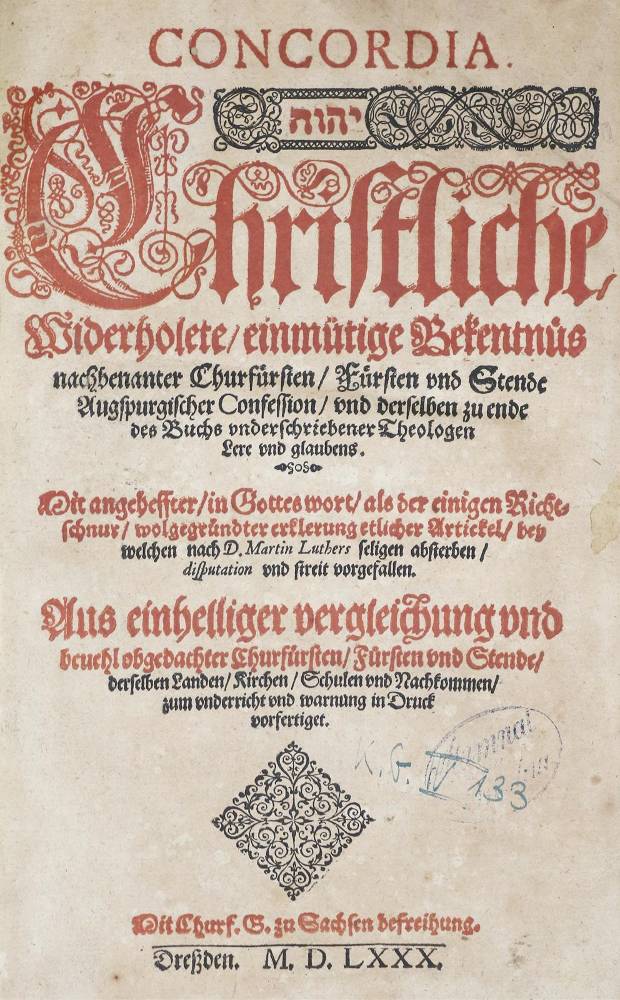 CONCORDIA.
יהוה
Christliche
Widerholete/ einmütige Bekentnüs
nachbenanter Churfürsten/ Fürsten vnd Stende
Augspurgischer Confession/ vnd derselben zu ende
des Buchs vnderschriebener Theologen
Lere vnd glaubens.
Mit angeheffter/ in Gottes wort/ als der einigen Richt-
schnur/ wolgegründter erklerung etlicher Artickel/ bey
welchen nach D. Martin Luthers seligen absterben/
disputation vnd streit vorgefallen.
Aus einhelliger vergleichung vnd
beuehl obgedachter Churfürsten/ Fürsten vnd Stende/
derselben Landen/ Kirchen/ Schulen vnd Nachkommen/
zum vnderricht vnd warnung in Druck
vorfertiget.
K. G. IV 133
Mit Churf. G. zu Sachsen befreihung.
Dreßden. M. D. LXXX.